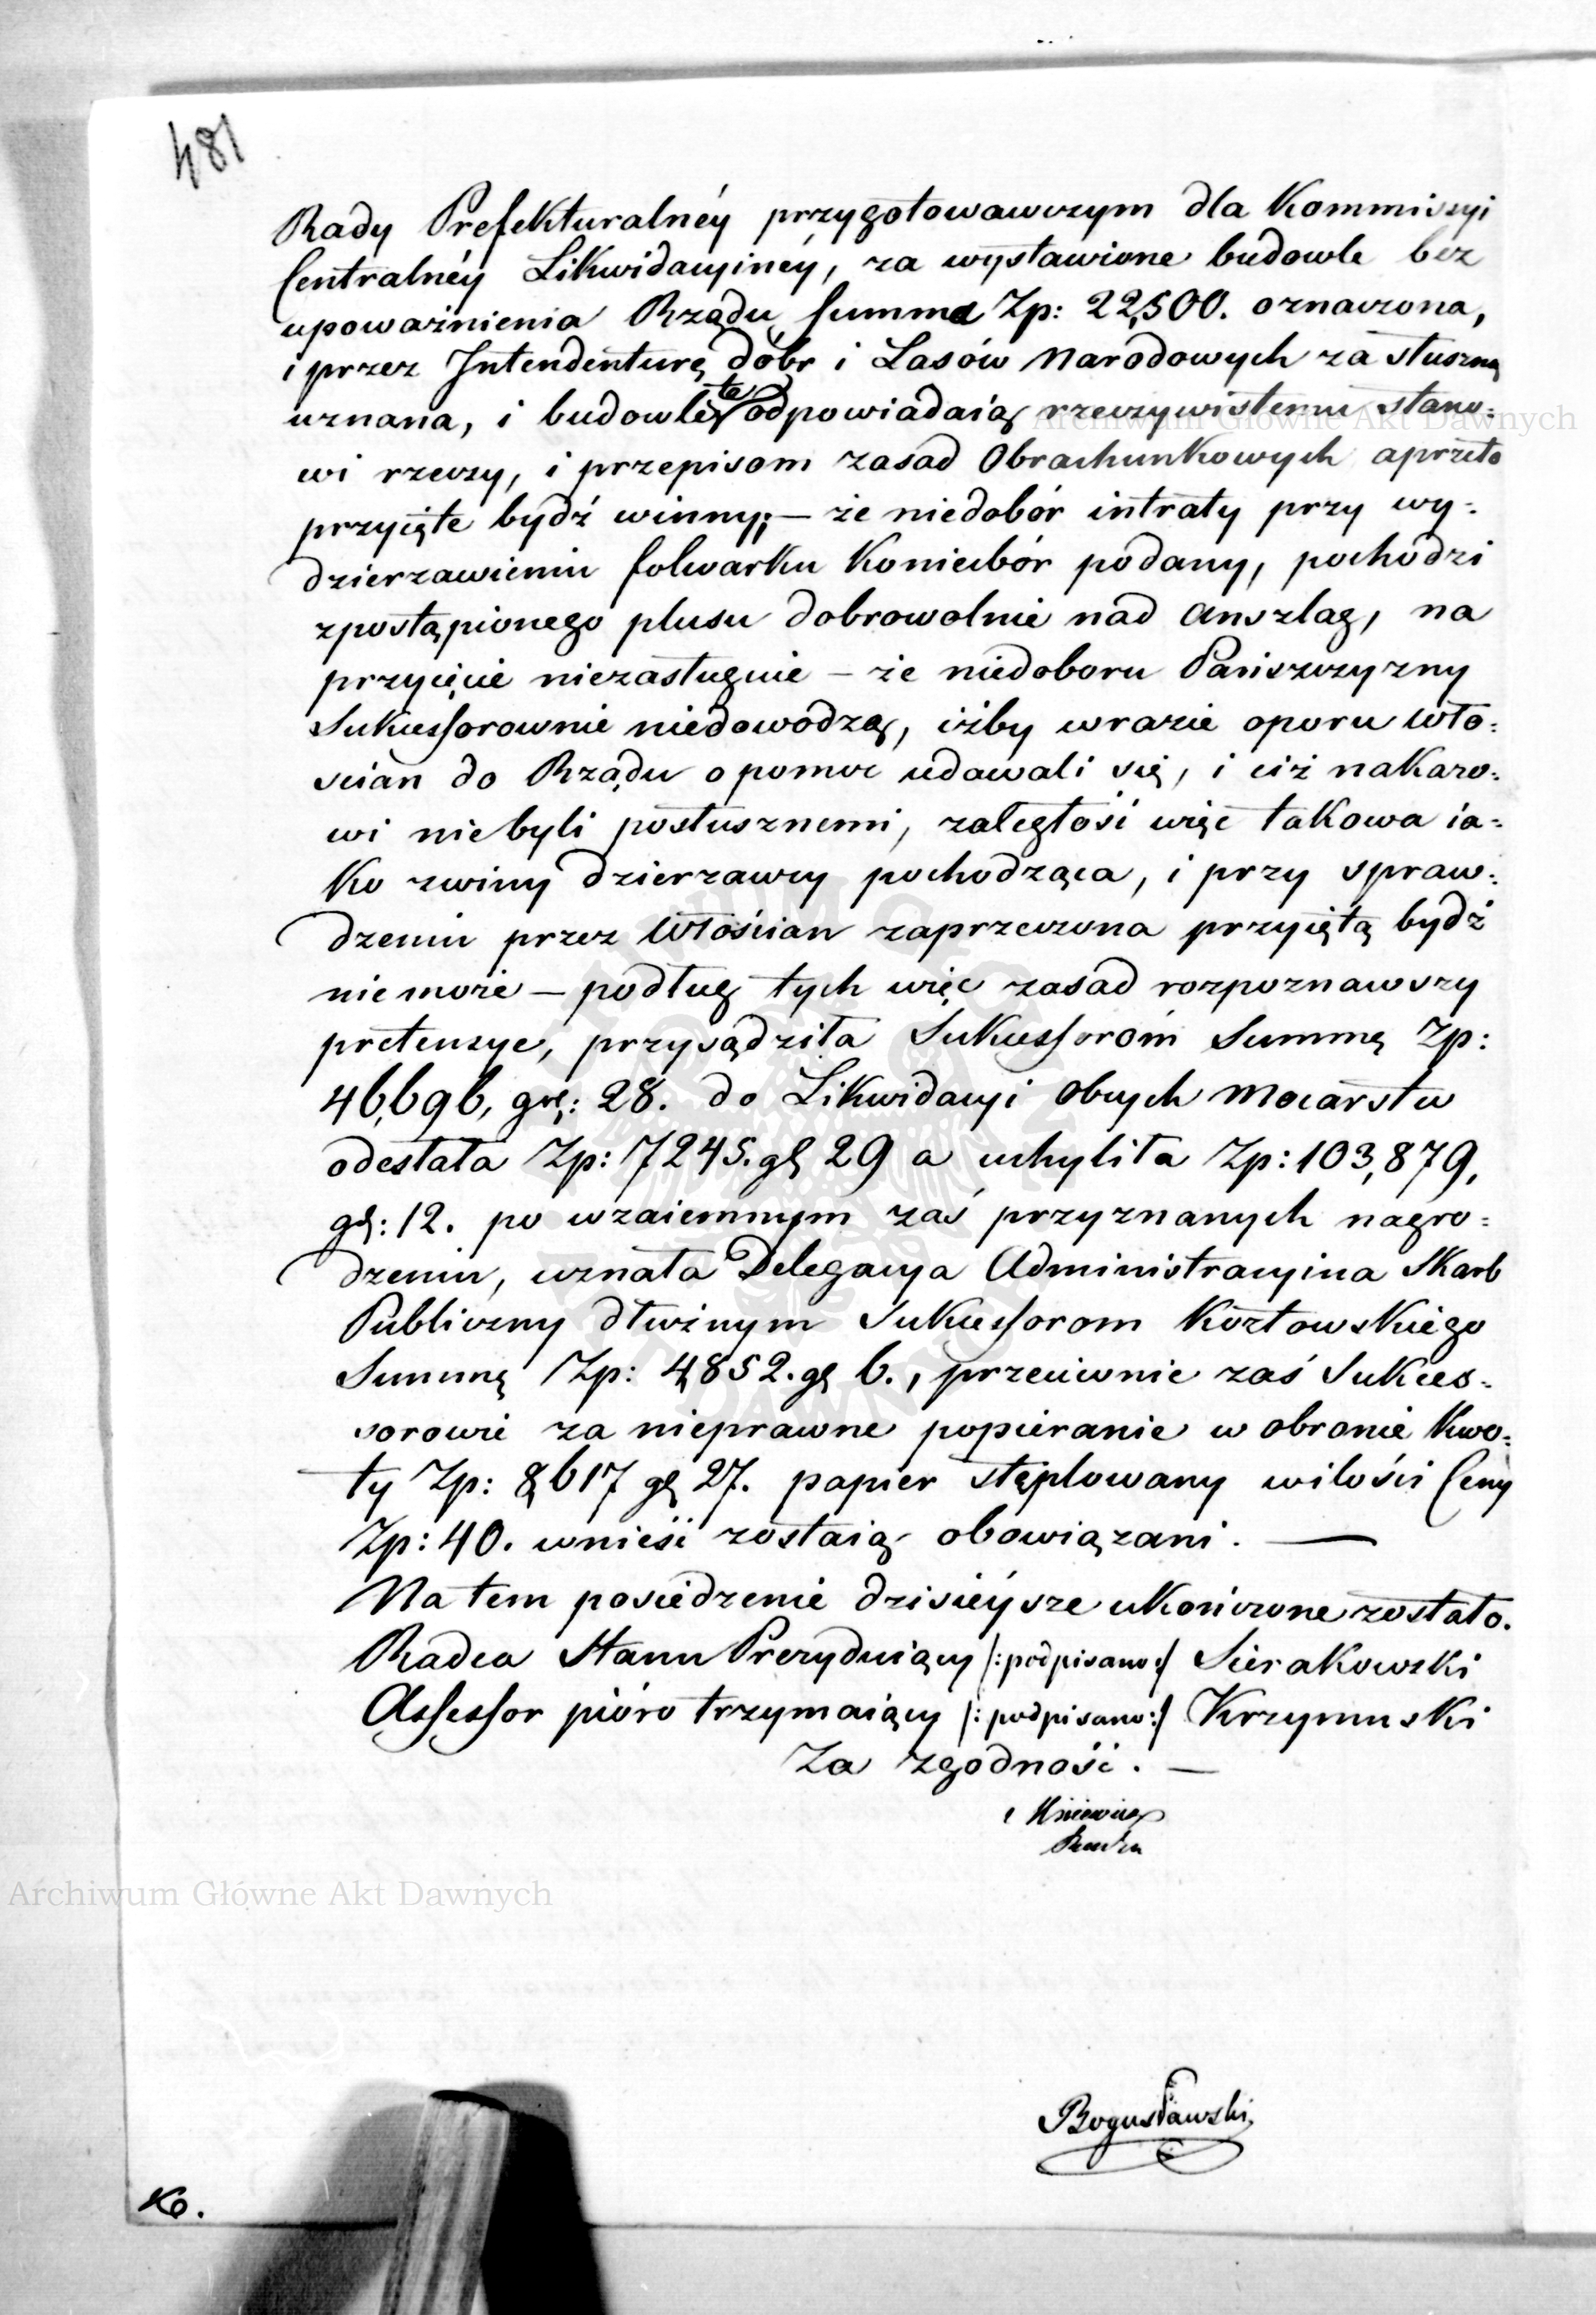 481
Rady Prefekturalnéy przygotowawczym dla Kommissyi
Centralnéy Likwidacyinéy, za wystawione budowle bez
upoważnienia Rządu summa Zp: 22,500. oznaczona,
i przez Intendenturę dóbr i Lasów Narodowych za słuszną
uznana, i budowle te odpowiadaią rzeczywistemu stano=
wi rzeczy, i przepisom zasad Obrachunkowych aprzeto
przyięte bydź winny; — że niedobór intraty przy wy=
dzierzawieniu folwarku Koniecbór podany, pochodzi
zpostąpionego plusu dobrowolnie nad Anszlag, na
przyięcie niezasługuie — że niedoboru Pańszczyzny
Sukcessorownie niedowodzą, iżby wrazie oporu Wło=
scian do Rządu o pomoc udawali się, i ciż nakazo=
wi niebyli posłusznemi, zaległość więc takowa ia=
ko zwiny dzierzawcy pochodząca, i przy spraw=
dzeniu przez Włościan zaprzeczona przyiętą bydź
niemoże — podług tych więc zasad rozpoznawszy
pretensye, przysądziła Sukcessorom Summę Zp:
46,696, gr: 28. do Likwidacyi Obcych Mocarstw
odesłała Zp: 7245. gr 29 a uchyliła Zp: 103,879,
gr: 12. po wzaiemnym zaś przyznanych nagro=
dzeniu, uznała Delegacya Administracyina Skarb
Publiczny dłużnym Sukcessorom Kozłowskiego
Summę Zp: 4,852. gr 6., przeciwnie zaś Sukces=
sorowie za nieprawne popieranie w obronie kwo=
ty Zp: 8,617 gr 27. papier stęplowany wilości Ceny
Zp: 40. wnieść zostaią obowiązani. —
Na tem posiedzenie dzisieysze ukończone zostało.
Radca Stanu Prezyduiący /:podpisano:/ Sierakowski
Assessor pióro trzymaiący /:podpisano:/ Krzymuski
Za zgodność. —
Bogusławski
Ko.
Archiwum Główne Akt Dawnych
Archiwum Główne Akt Dawnych